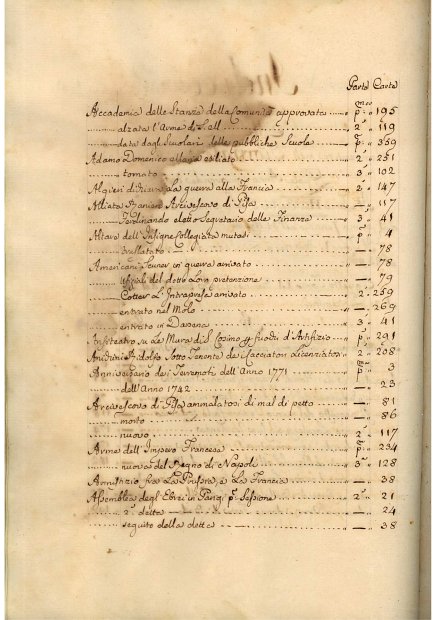 Parte Carte
Accademia delle Stanze della Comunità approvata p.mo 195
alzata l'Arme di S. ell 2° 119
data dagl Scuolari delle pubbliche Scuole p.° 359
Adamo Domenico esiliato 2° 251
tornato 3° 102
Algieri dichiara la guerra alla Francia 2° 147
Alliata Ranieri Arcivescovo di Pisa — 117
Ferdinando eletto Segretario delle Finanze 3° 41
Altare dell'Insigne Collegiata mutasi p.° 4
traslatato — 78
Americani in guerra arrivato — 78
Ufiziali del detto pretenzione — 79
L'Intraprese arrivato 2° 259
entrato nel Molo — 269
entrato in Darsena 3° 41
Anfiteatro su Le Mura di S. Cosimo p fuochi d'Artifizio p.° 291
Adolfo Sotto Tenente de Cacciatori Licenziatosi 2° 208
Anniversario de i Terremoti dell'Anno 1771 p.mo 3
dell'Anno 1742 — 23
Arcivescovo di Pisa ammalatosi di mal de petto — 81
morto — 86
nuovo 2° 117
Arme dell'Impero Francese p.° 234
nuova del Regno di Napoli 3° 128
Armistizio fra La Prussia, e La Francia — 38
Assemblea degl Ebrei in Parigi p.° Sessione 2° 21
2.° detta — 24
seguito della detta — 38